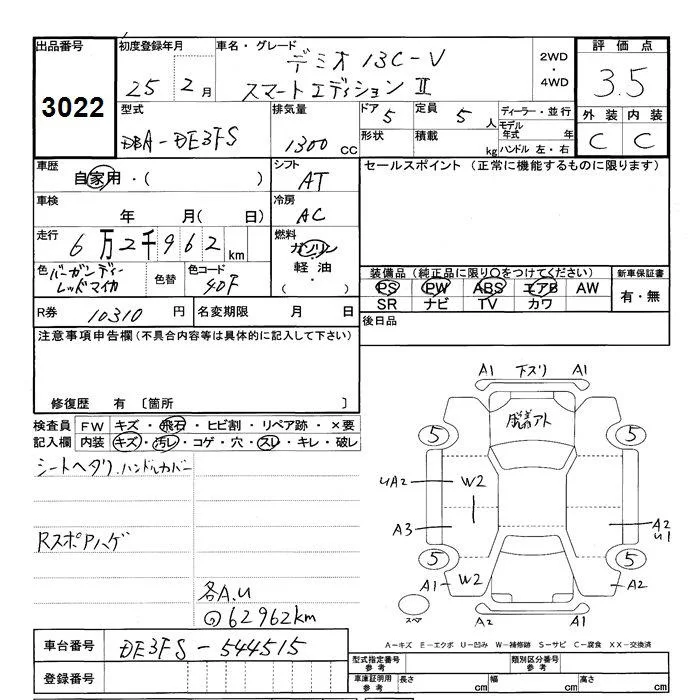 出品番号 3022
初度登録年月 25年 2月
車名・グレード デミオ 13C-V
スマートエディションⅡ
2WD ・ 4WD
評価点 3.5
外装 内装
C C
型式 DBA-DE3FS
排気量 1300 CC
ドア 5 定員 5 人
形状 積載 kg
ディーラー・並行
モデル年式 年
ハンドル 左・右
車歴 自家用・( )
シフト AT
セールスポイント (正常に機能するものに限ります)
車検 年 月( 日)
冷房 AC
走行 6万2千962km
燃料 ガソリン
軽油・( )
色 バーガンディーレッドマイカ 色替 色コード 40F
装備品(純正品に限り〇をつけてください)
PS PW ABS エアB AW
SR ナビ TV カワ
新車保証書
有・無
R券 10310 円 名変期限 月 日
後日品
注意事項申告欄(不具合内容等は具体的に記入して下さい)
修復歴 有 〔箇所 〕
検査員記入欄
FW キズ・飛石・ヒビ割・リペア跡・×要
内装 キズ・汚レ・コゲ・穴・スレ・キレ・破レ
シートヘタリ.ハンドルカバー
Rスポアハゲ
各A.U
62962km
A1 下スリ A1
アト
5 5
UA2 W2
A3 A2
U1
5 5
A1 W2 A2
スペア A2 A1
A-キズ E-エクボ U-凹み W-補修跡 S-サビ C-腐食 XX-交換済
車台番号 DE3FS-544515
登録番号
型式指定番号 参考 類別区分番号 参考
車庫証明用 参考 長さ cm 幅 cm 高さ cm